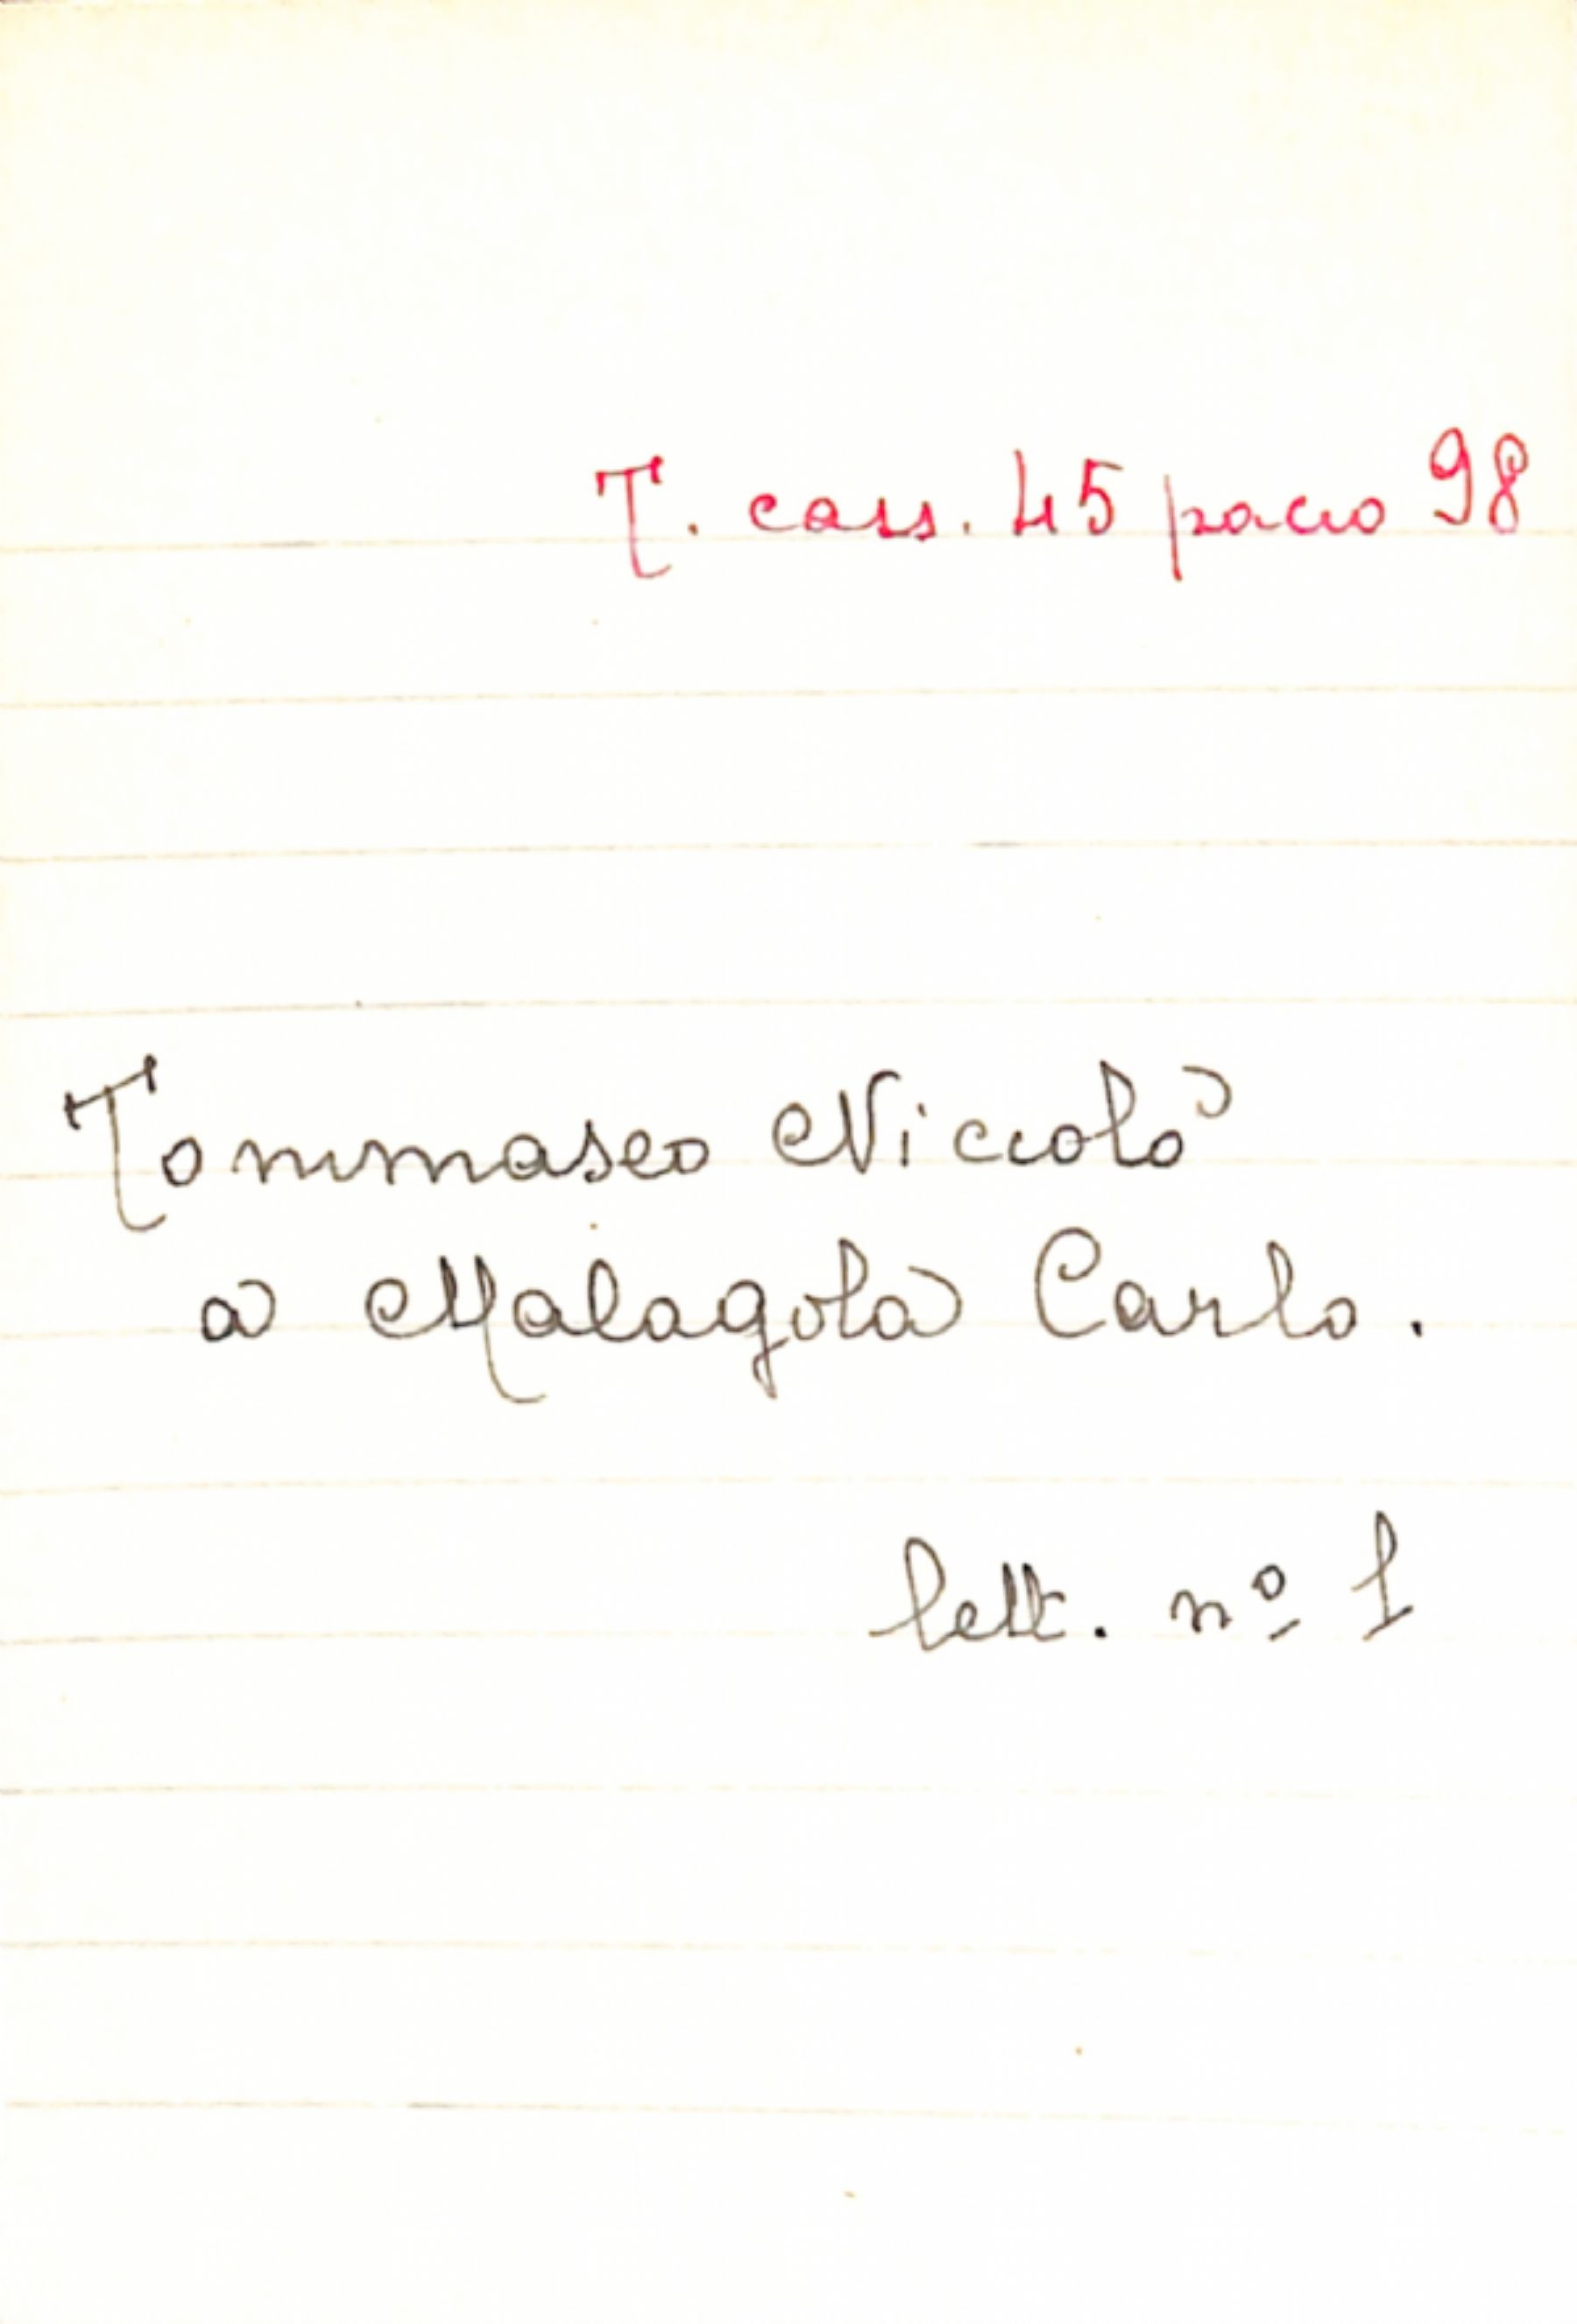 T. cass. 45 pacco 98
Tommaseo Niccolò
a Malagola Carlo.
lett. nº 1